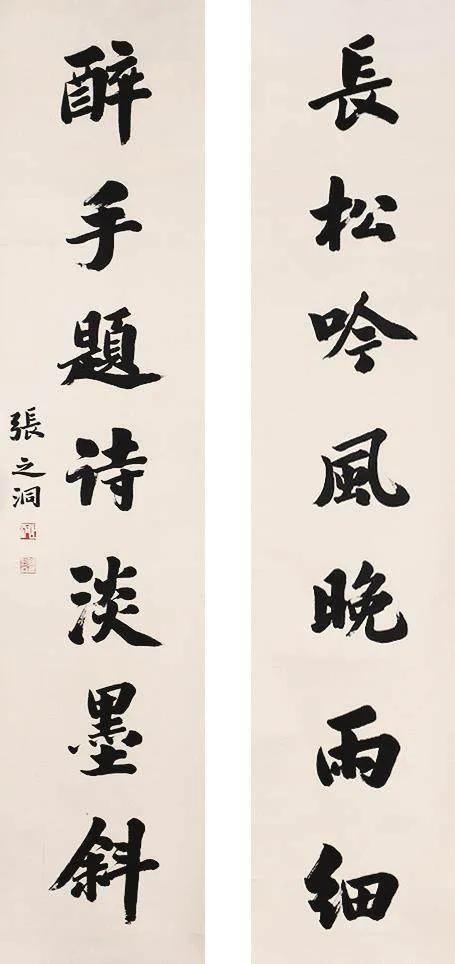 長松吟風晚雨细
醉手題诗淡墨斜
張之洞